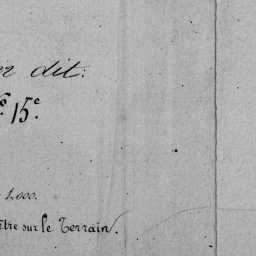 er dit:
15e
1,000.
ître sur le Terrain.